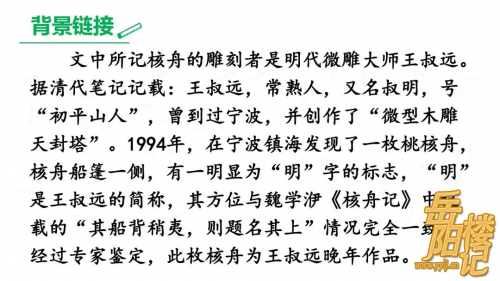 背景链接
文中所记核舟的雕刻者是明代微雕大师王叔远。
据清代笔记记载：王叔远，常熟人，又名叔明，号
“初平山人”，曾到过宁波，并创作了“微型木雕
天封塔”。1994年，在宁波镇海发现了一枚桃核舟，
核舟船篷一侧，有一明显为“明”字的标志，“明”
是王叔远的简称，其方位与魏学洢《核舟记》中
载的“其船背稍夷，则题名其上”情况完全一
经过专家鉴定，此枚核舟为王叔远晚年作品。
岳阳楼记